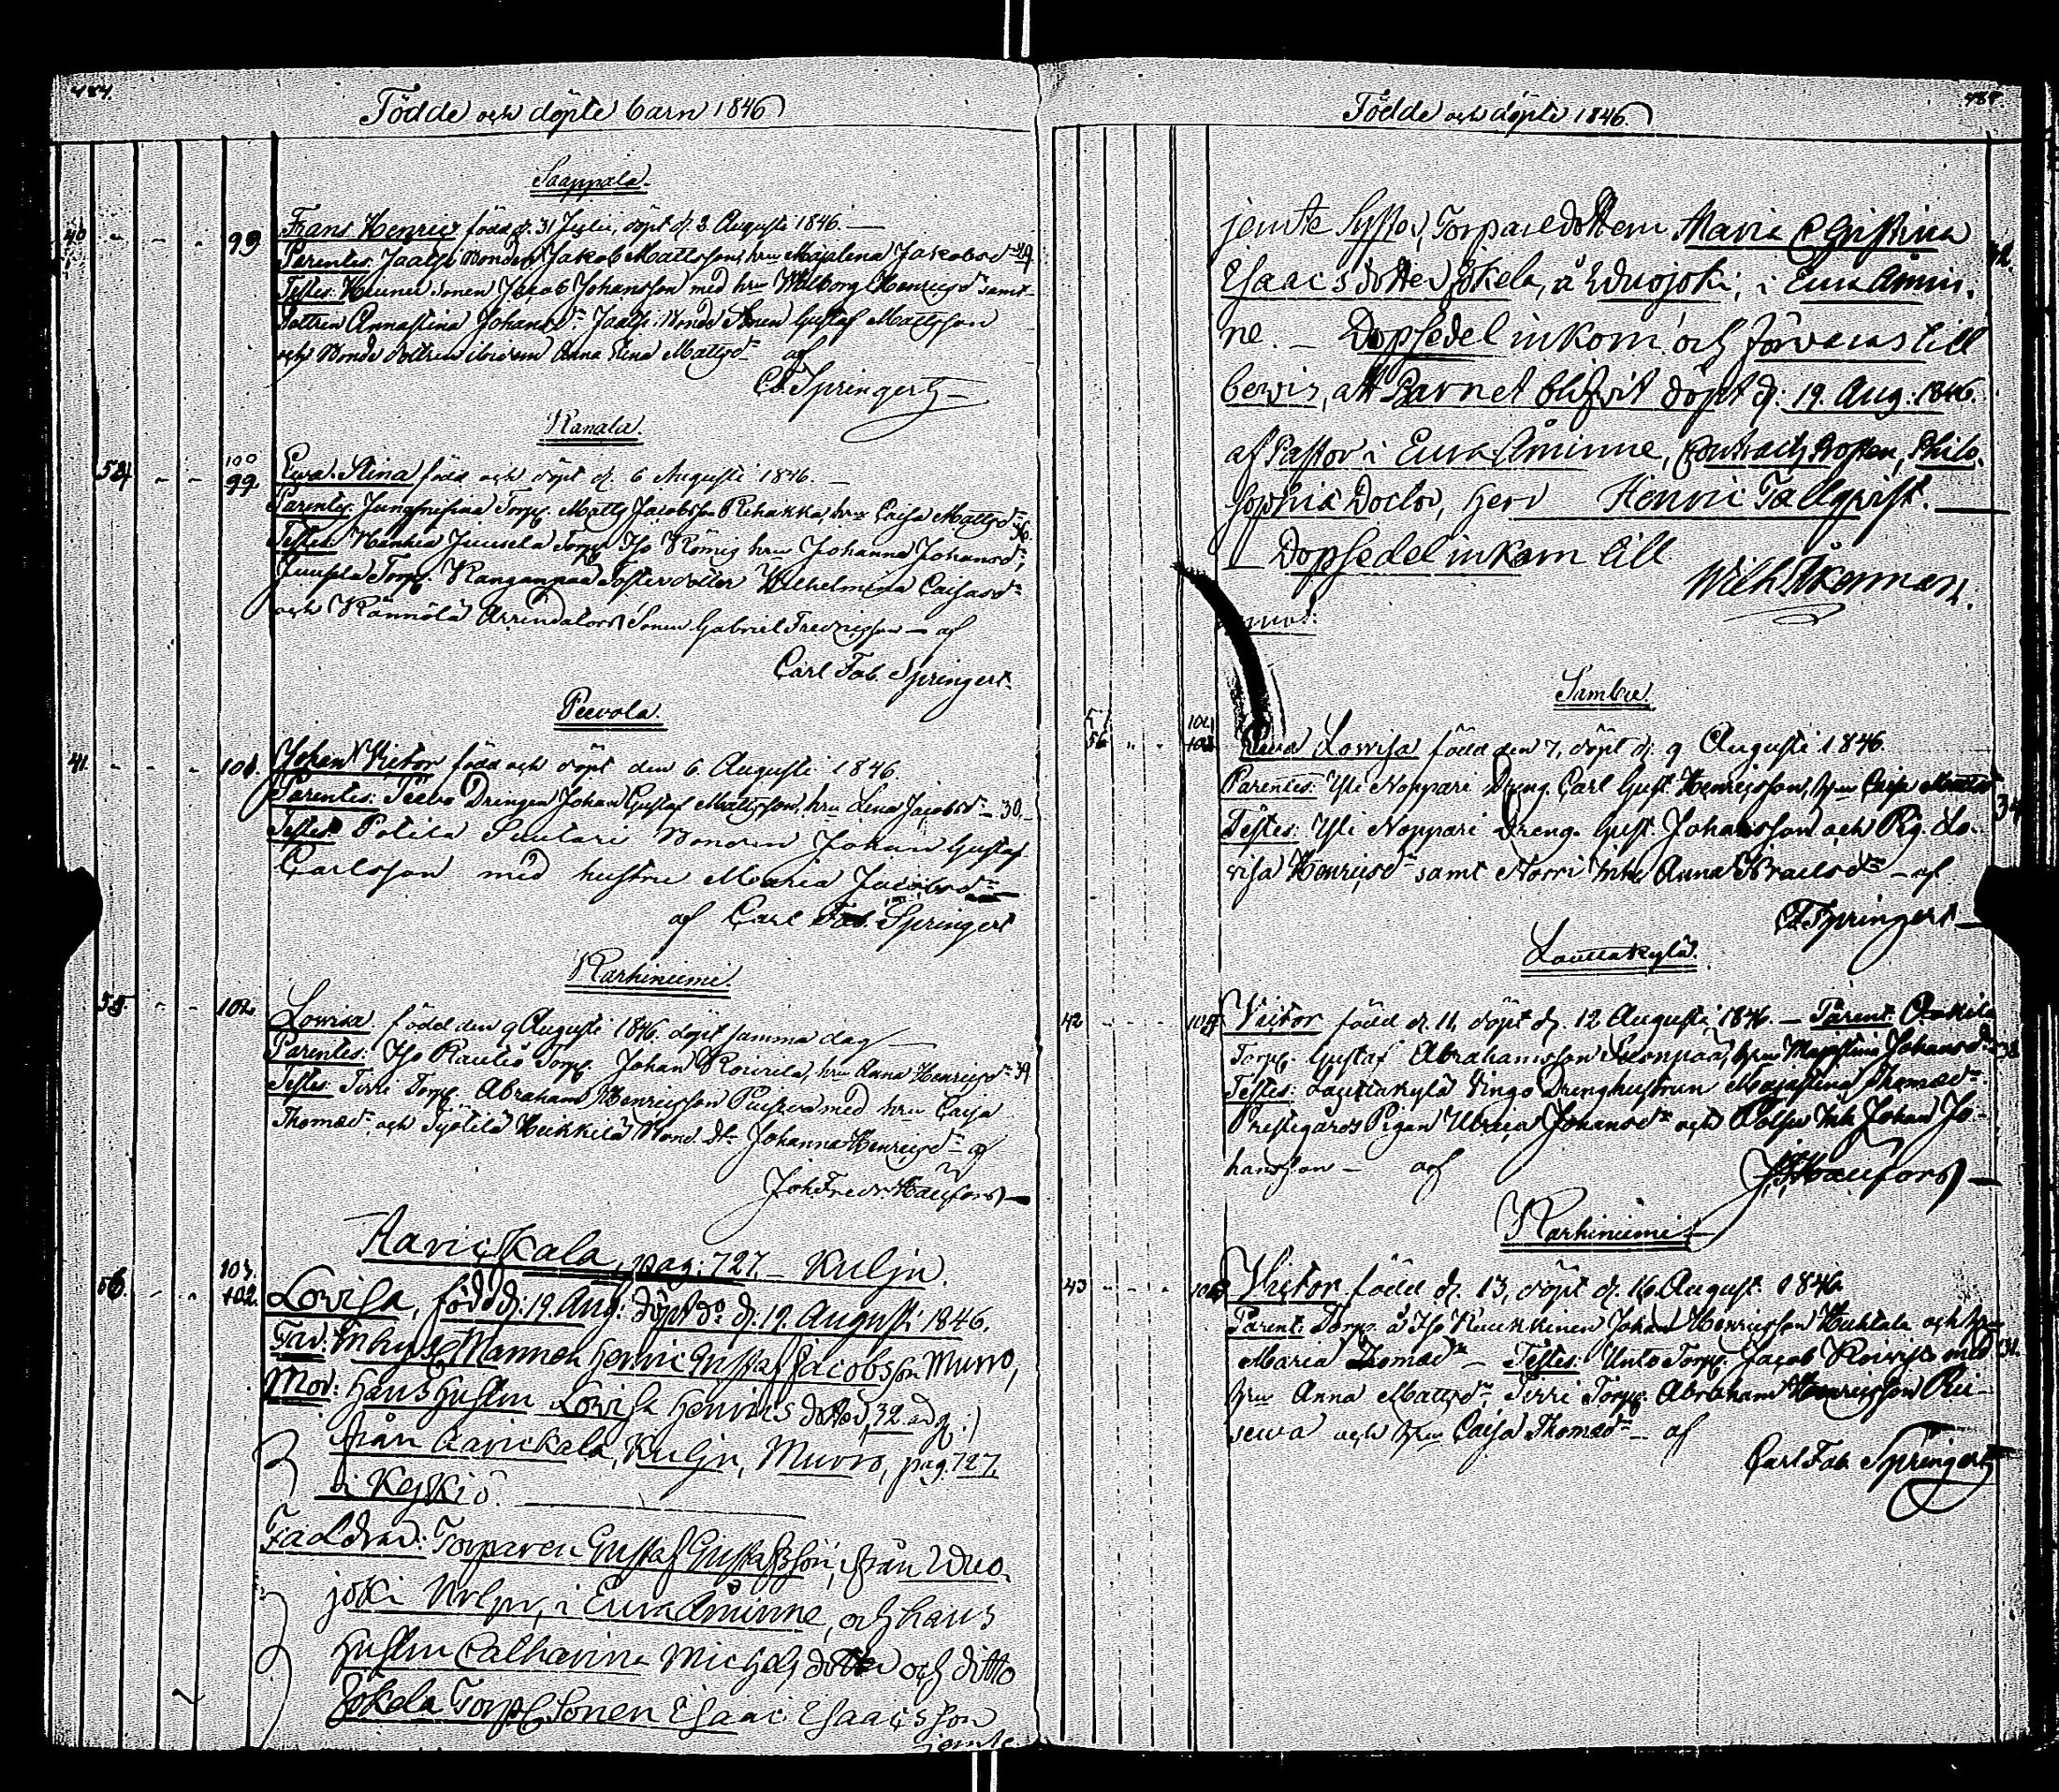 484.
Födde och döpte barn 1846
Saappala.
40 - - - 99 Frans Henric född d. 31 Julii, döpt d. 2 Augusti 1846. —
Parentes: Jaatsi Bonden Jakob Mattsson, hru Majalena Jakobsdr 29.
Testes: Huunu sonen Jacob Johansson med hru Walborg Henricsdr samt
dottren Annastina Johansdr Jaatsi Bonde Sonen Gustaf Mattsson
och Bonde dottren ibidem Anna Stina Mattsdr af
C.F. Springert
Kanala.
54 - - 100 99. Eva Stina född och döpt d. 6 Augusti 1846. —
Parentes: Torp. Matts Jacobsson Rihakka, hru Caisa Mattsdr 36.
Testes: Torp. Iso hru Johanna Johansdr,
Torp. dotter Wilhelmina Caisasdr
och Kännölä Arrendators Sonen Gabriel Fredricsson — af
Carl Fab. Springert.
Peevola.
41. - - - 101. Johan Victor född och döpt den 6 Augusti 1846.
Parentes: Peevo Drängen Johan Gustaf Mattsson, hru Lena Jacobsdr — 30.
Testes: Potila Puutari Bonden Johan Gustaf
Carlsson med hustru Maria Jacobsdr —
af Carl Fab. Springert
Karhiniemi.
55. - - 102 Lovisa född den 9 Augusti 1846. döpt samma dag —
Parentes: Iso Rautio Torp. Johan Koivula, hru Anna Henricsdr 39
Testes: Tirri Torp. Abraham Henricsson Puiseva med hru Caisa
Thomædr, och Työtilä Heikkilä Bond. dtr Johanna Henricsdr af
Joh Fredr Haufors —
Aarickala, pag: 727. — Kulju.
56. - - 103. 102. Lovisa, född d: 19. Aug: döpt do d: 19. Augusti 1846.
Fad: Inhyses Mannen Henric Gustaf Jacobsson Murro,
Mod: Hans Hustru Lovisa Henrics dotter, 32. årg:)
från Aarickala, Kulju, Murro, pag. 727.
i Keskiö.
Faddrar: Torparen Gustaf Gustafsson, från Wuo-
joki, i Eura Åminne, och hans
Hustru Catharina Michels dotter och ditto
Jokela Torp. Sonen Esaac Esaacsson
jemte
Födde och döpte 1846.
jemte Syster, Torparedottern Maria Christina 42.
Esaacsdotter Jokela, å Wuojoki, i Eura Åmin-
ne. — Dopsedel inkom och förvaras till
bevis, att Barnet blifvit döpt d: 19. Aug: 1846.
af Pastor i Eura Åminne, Contractsprosten, Philo-
sophiæ Doctor, Herr Henric Tallqvist. —
— Dopsedel inkom till
Wilh Åkerman.
Sambu.
57 56 - - 104 103 Eva Lovisa född den 7, döpt d: 9 Augusti 1846.
Parentes: Yli Noppari Dreng. Carl Gust. Henricsson, hru Caisa Mattsdr
34
Testes: Yli Noppari Dreng. Gust. Johansson och Pig. Lo-
visa Henricsdr samt Norri Inh. Anna Israelsdr — af
C.F. Springert —
Lauttakylä.
42 - - - 105 Victor född d. 11, döpt d. 12 Augusti 1846. — Parent. Ankila
Torp. Gustaf Abrahamsson, hru Majastina Johansdr
Testes: Lauttakylä Vingo Drenghustrun Majastina Thomædr
Prestgårds Pigan Ulrica Johansdr och Inh. Johan Jo-
hansson — af J.F. Haufors —
Karhiniemi —
43 - - - 106 Victor född d. 13, döpt d. 16 August. 1846.
Parent: Torp. å Iso Kuukkinen Johan Henricsson Huhtala och hru
Maria Thomædr — Testes: Unto Torp. Jacob Koivisto med 31.
hru Anna Mattsdr, Tirri Torp. Abraham Henricsson Pui-
seva och hru Caisa Thomædr — af
Carl Fab. Springert